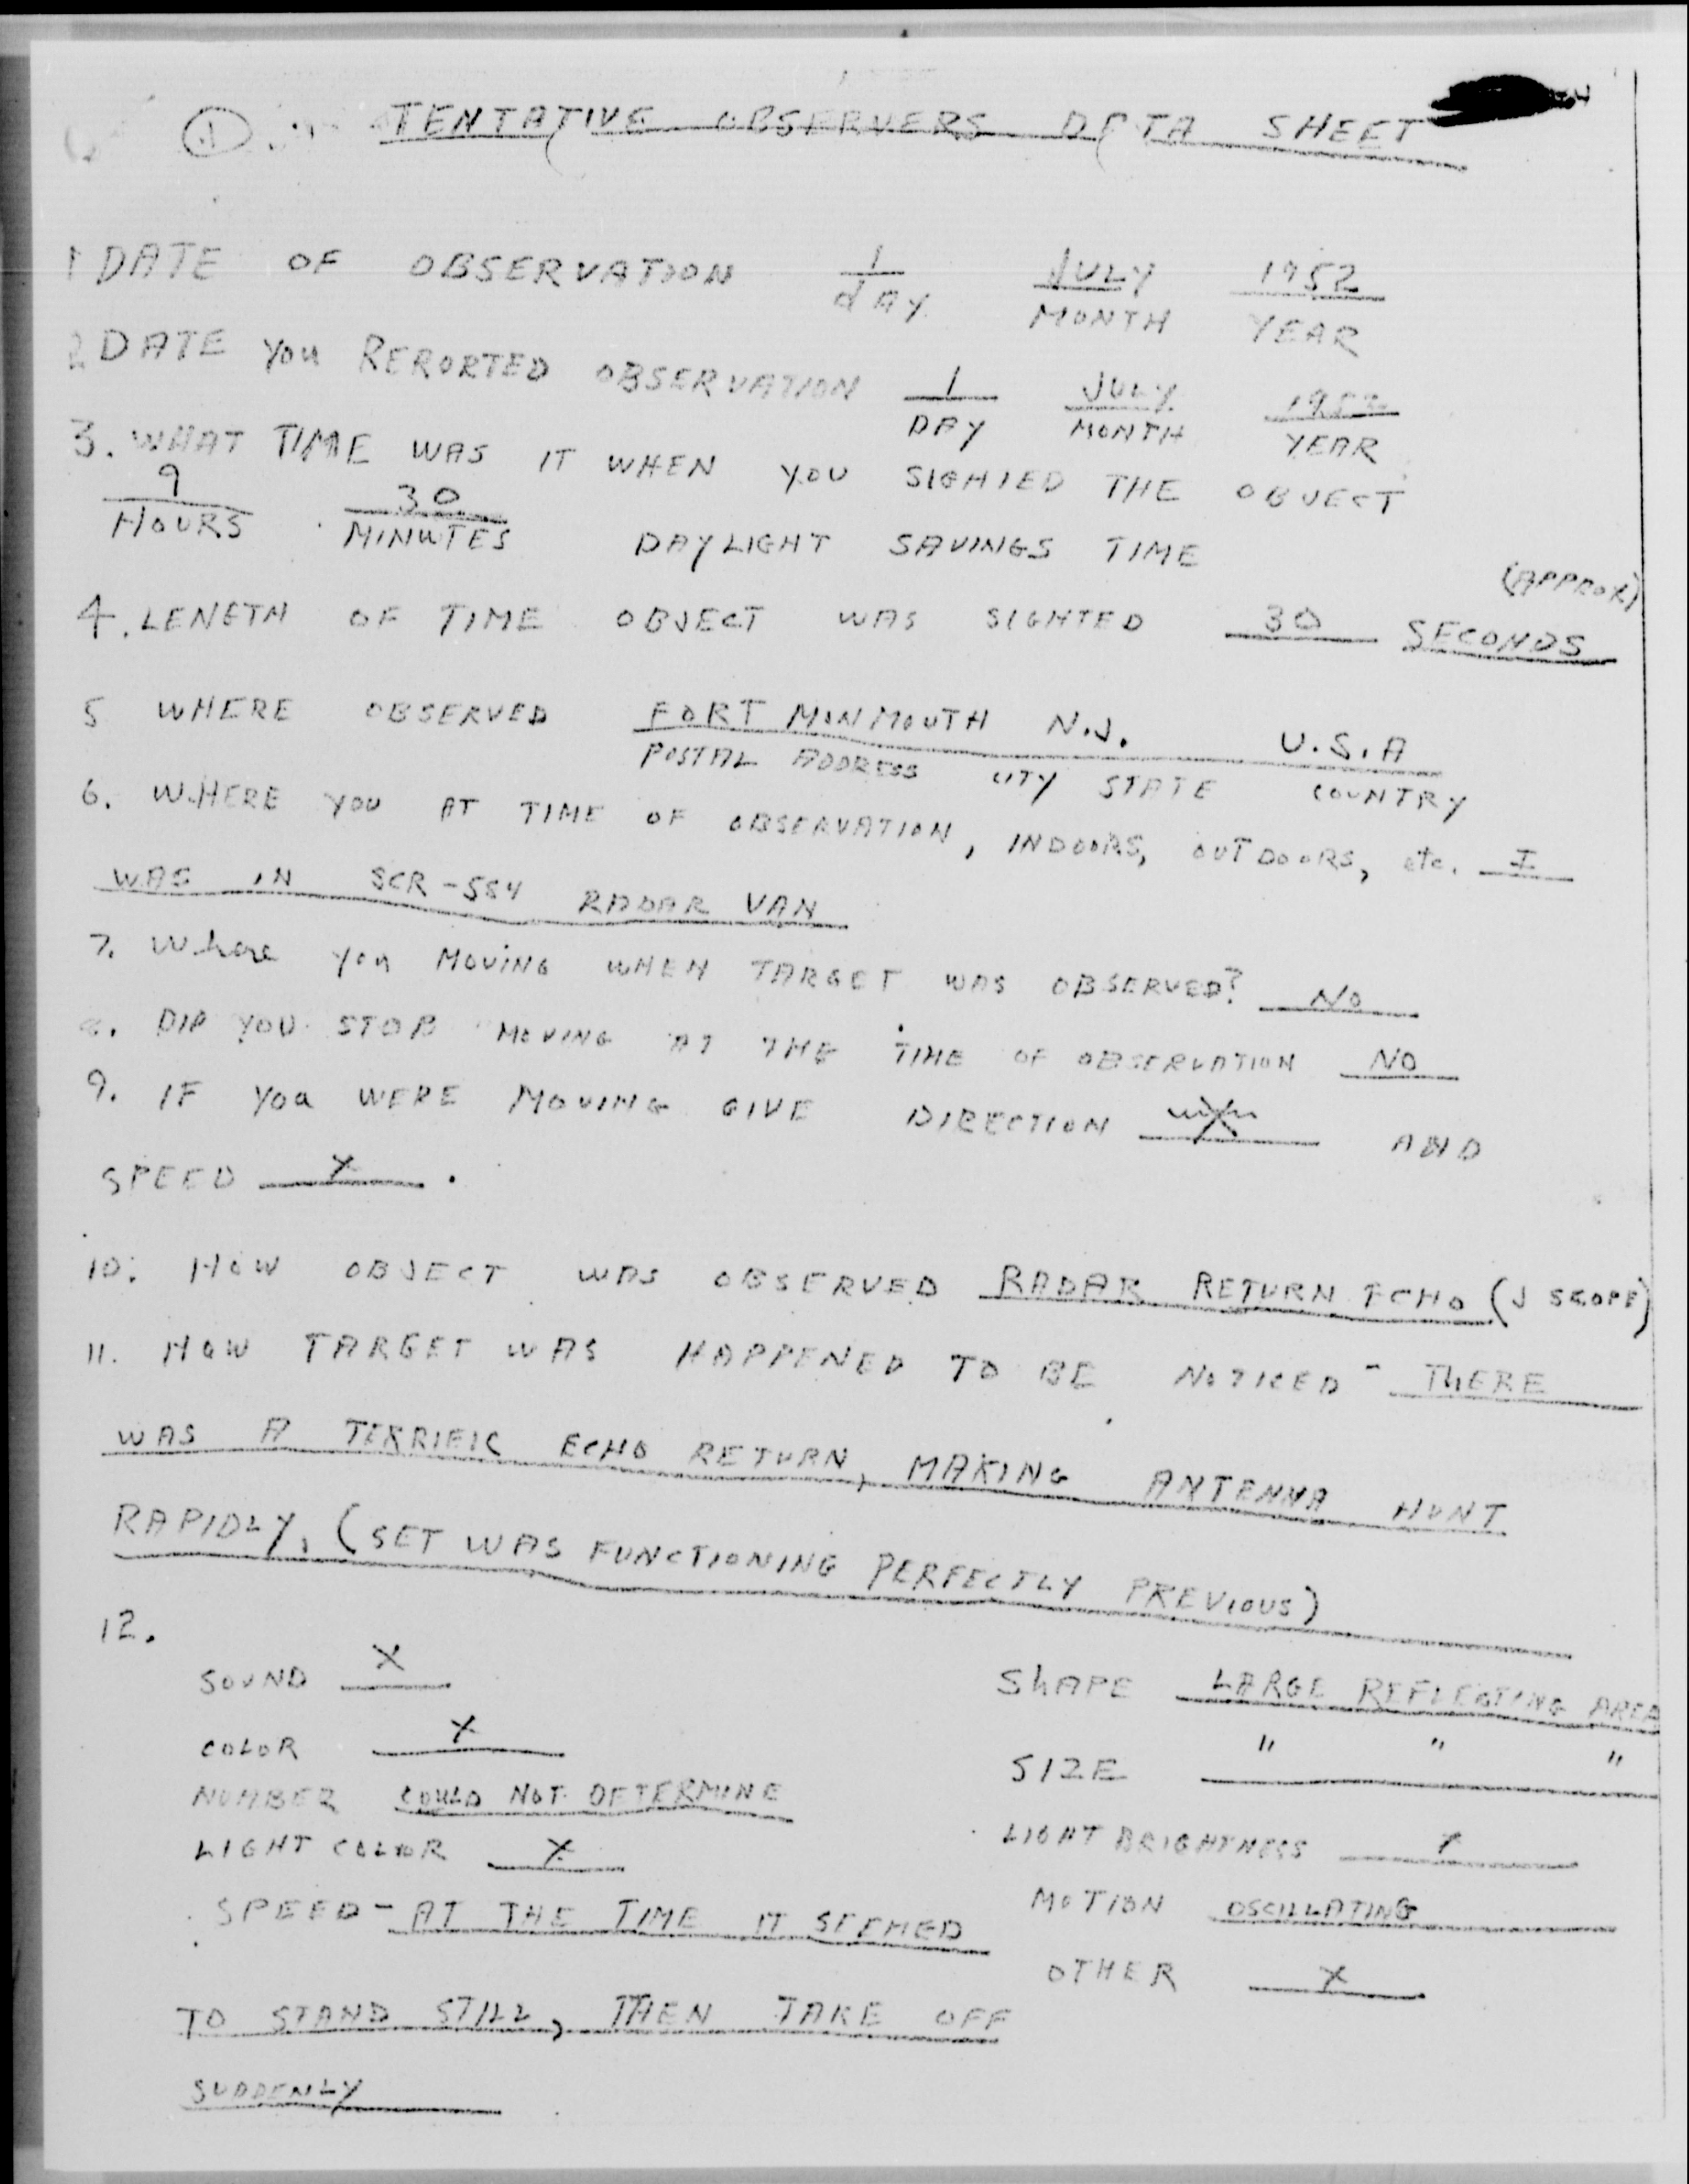 1 TENTATIVE OBSERVERS DATA SHEET
1 DATE OF OBSERVATION 1 JULY 1952
dAY MONTH YEAR
2 DATE YOU RERORTED OBSERVATION 1 JULY 1952
DAY MONTH YEAR
3. WHAT TIME WAS IT WHEN YOU SIGHIED THE OBJECT
9 30
HOURS MINUTES DAYLIGHT SAVINGS TIME
(APPROX)
4. LENGTH OF TIME OBJECT WAS SIGHTED 30 SECONDS
5 WHERE OBSERVED FORT MONMOUTH N.J. U.S.A
POSTAL ADDRESS CITY STATE COUNTRY
6. WHERE YOU AT TIME OF OBSERVATION, INDOORS, OUTDOORS, etc. I
WAS IN SCR-584 RADAR VAN
7. Where you MOVING WHEN TARGET WAS OBSERVED? NO
8. DID YOU STOP MOVING AT THE TIME OF OBSERVATION NO
9. IF YOU WERE MOVING GIVE DIRECTION X AND
SPEED X .
10. HOW OBJECT WAS OBSERVED RADAR RETURN ECHO (J SCOPE)
11. HOW TARGET WAS HAPPENED TO BE NOTICED - THERE
WAS A TERRIFIC ECHO RETURN, MAKING ANTENNA HUNT
RAPIDLY. (SET WAS FUNCTIONING PERFECTLY PREVIOUS)
12.
SOUND X SHAPE LARGE REFLECTING AREA
COLOR X SIZE " " "
NUMBER COULD NOT DETERMINE
LIGHT COLOR X LIGHT BRIGHTNESS X
SPEED - AT THE TIME IT SEEMED MOTION OSCILLATING
OTHER X
TO STAND STILL, THEN TAKE OFF
SUDDENLY